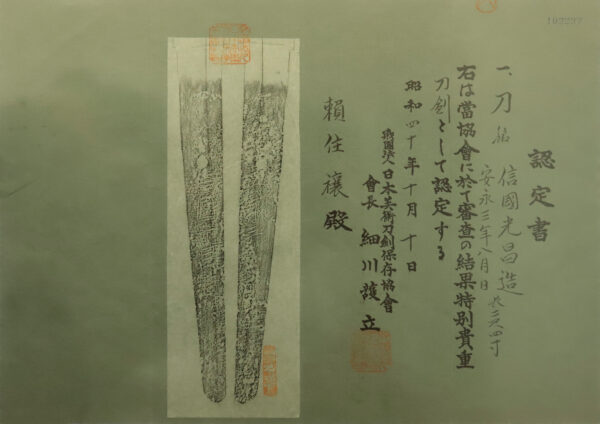 認定書
一、刀 銘 信國光昌造
安永三年八月日
右は當協會に於て審査の結果特別貴重
刀剣として認定する
昭和四十年十月十日
財團法人日本美術刀剣保存協會
會長 細川護立
頼住
殿